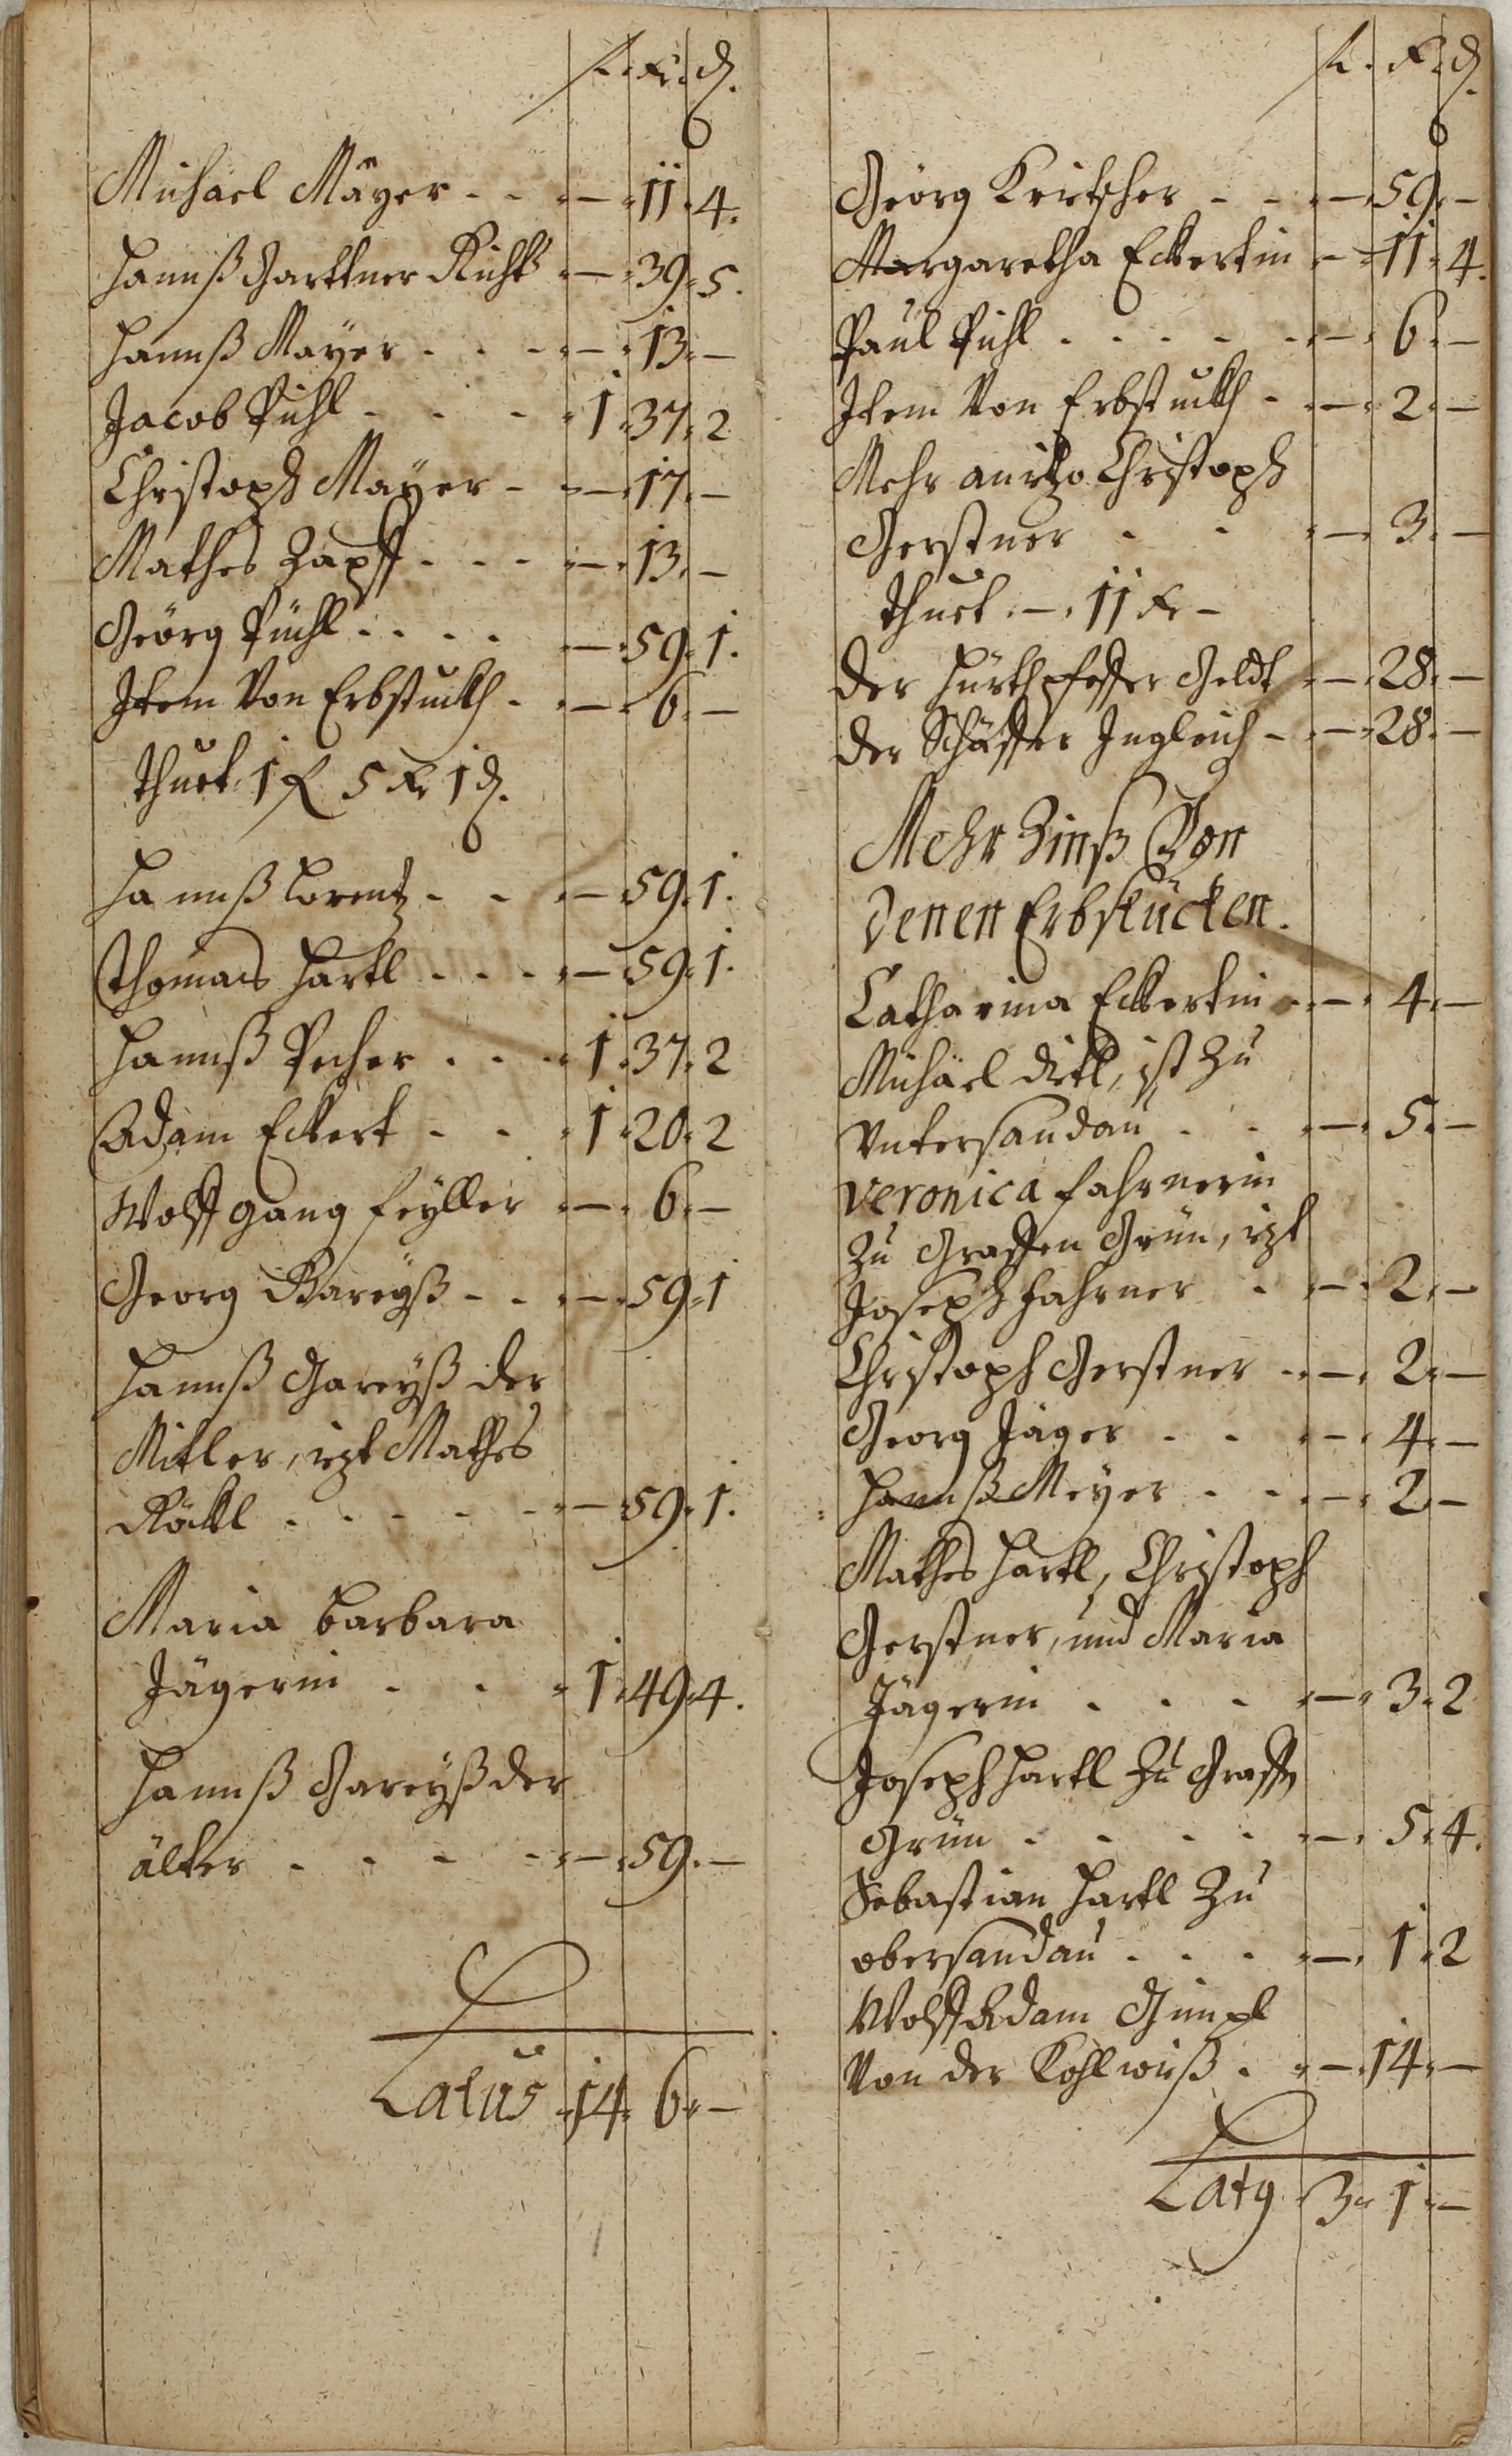 f. Kr. ₰.
Michäel Mäyer - - - 11. 4.
Hannß Garttner Richt - 39. 5.
Hannß Mayer - - - - 13. -
Jacob Puhl - - - 1. 37. 2
Christoph Mayer - - 17. -
Mathes Zapff - - - - 13. -
Geörg Püchl . . . . - 59. 1.
Item Von Erbstuckh - - 6. -
thuet 1 f 5 Kr 1 ₰.
Hannß Lorentz - - - 59. 1.
Thomas Hartl - - - - 59. 1.
Hannß Pecher . . . 1. 37. 2
Adam Eckert - - 1. 20. 2
Wolffgang Feÿller - 6. -
Georg Gareyß - - - 59. 1
Hannß Gareÿß der
Mitler, izt Mathes
Röckl . . . - - 59. 1.
Maria Barbara
Jägerin - - 1. 49. 4.
Hannß Gareÿß der
älter - - - - - 59. -
Latus 14. 6. -
f. Kr. ₰.
Geörg Kertscher - - - 59. -
Margaretha Eckertin - 11. 4.
Paul Puhl . . . . - 6. -
Item Von Erbstuckh - - 2. -
Mehr anietzo Christoph
Gerstner - - - 3. -
thuet - 11 Kr -
der Hürth Geldt - 28. -
der Schäffer Ingleich - - 28. -
Mehr Zinß Von
denen Erbstücken.
Catharina Eckertin - - 4. -
Michäel dietl, ist Zu
Untersandau - - - 5. -
Veronica Fahrnerin
Zu Graffen Grün, izt
Joseph Fahrner - - 2. -
Christoph Gerstner - - 2. -
Georg Jäger - - - 4. -
Hannß Meÿer - - - 2 -
Mathes Hartl, Christoph
Gerstner, und Maria
Jägerin - - - - 3. 2
Joseph Hartl Zu Graffen
Grün - - - - - 5. 4.
Sebastian Hartl Zu
obersandau - - - - 1. 2
Wolff Adam Gimpl
Von der Kohlwieß - - 14. -
Latus 3. 1. -